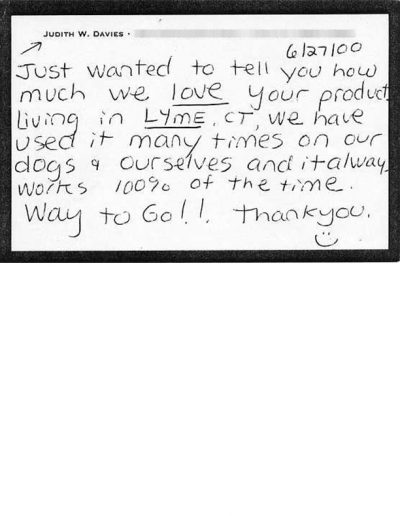 JUDITH W. DAVIES •
6/27/00
Just wanted to tell you how
much we love your product
Living in LYME, CT, we have
used it many times on our
dogs & ourselves and it alway
works 100% of the time.
Way to Go!! Thankyou.